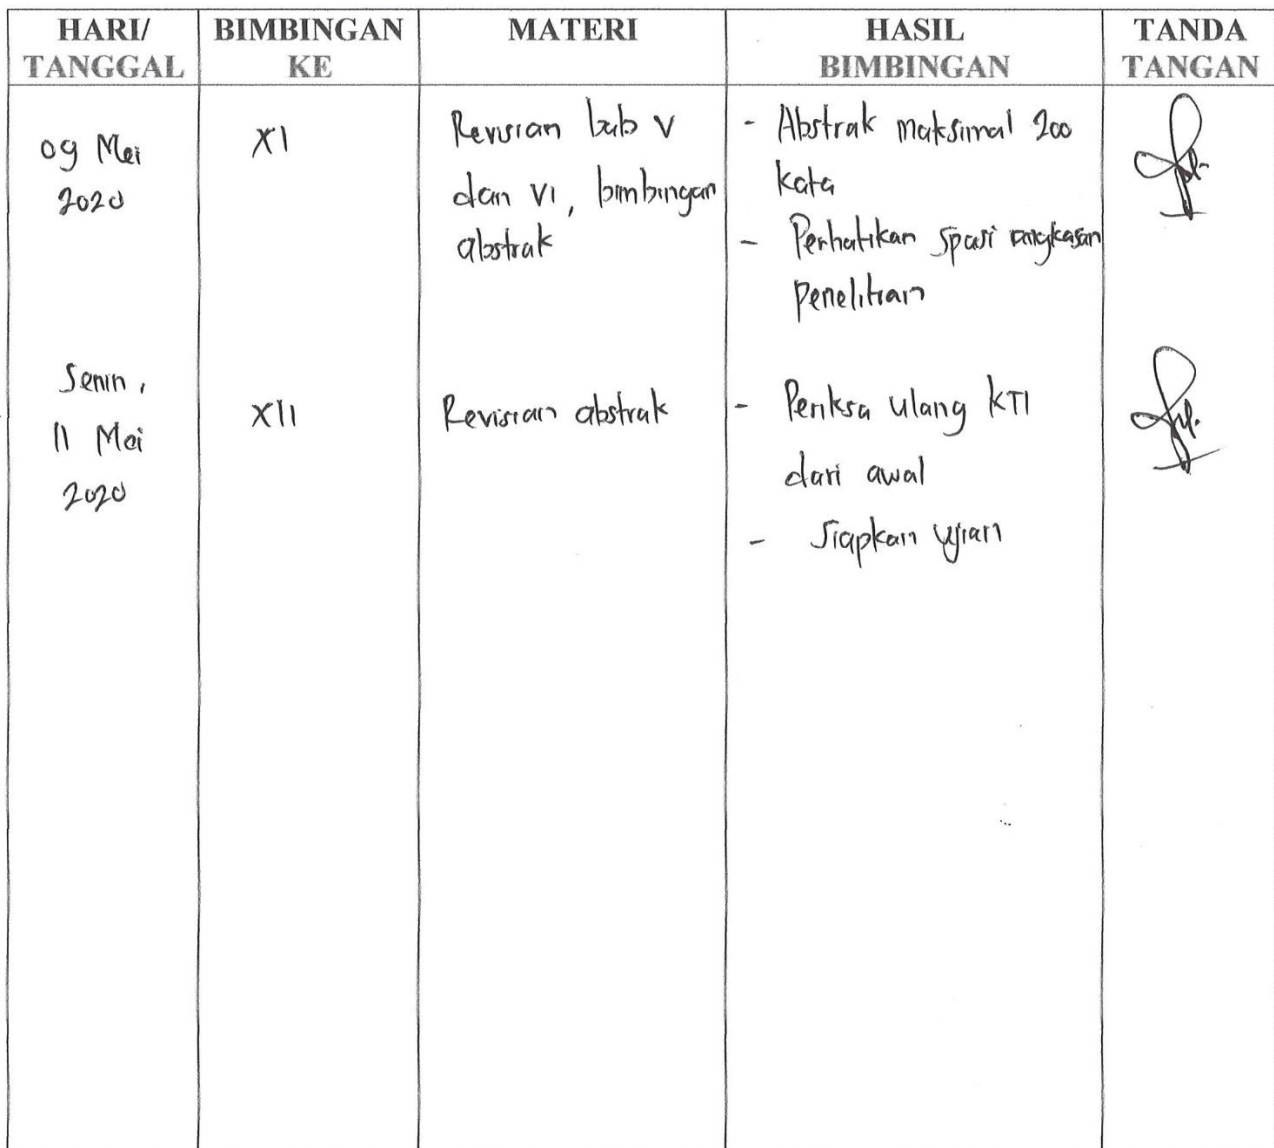 HARI/ TANGGAL
BIMBINGAN KE
MATERI
HASIL BIMBINGAN
TANDA TANGAN
09 Mei
2020
XI
Revisian bab V
dan VI, bimbingan
abstrak
- Abstrak maksimal 200
kata
- Perhatikan spasi ringkasan
penelitian
Senin,
11 Mei
2020
XII
Revisian abstrak
- Periksa ulang KTI
dari awal
- Siapkan ujian